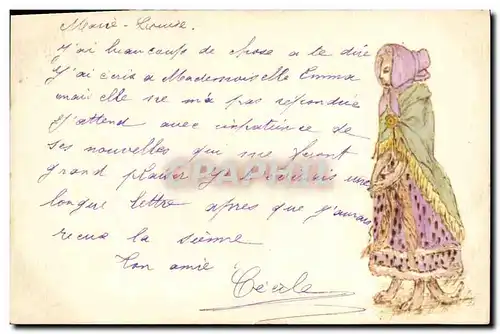 Marie-Louise.
J'ai beaucoup de chose a te dire
J'ai écris a Mademoiselle Emma
mais elle ne m'a pas repondue
J'attend avec impatience de
ses nouvelles qui me feront
grand plaisir J'écrirais une
longue lettre apres que j'aurais
recue la sienne
Ton amie Cécile